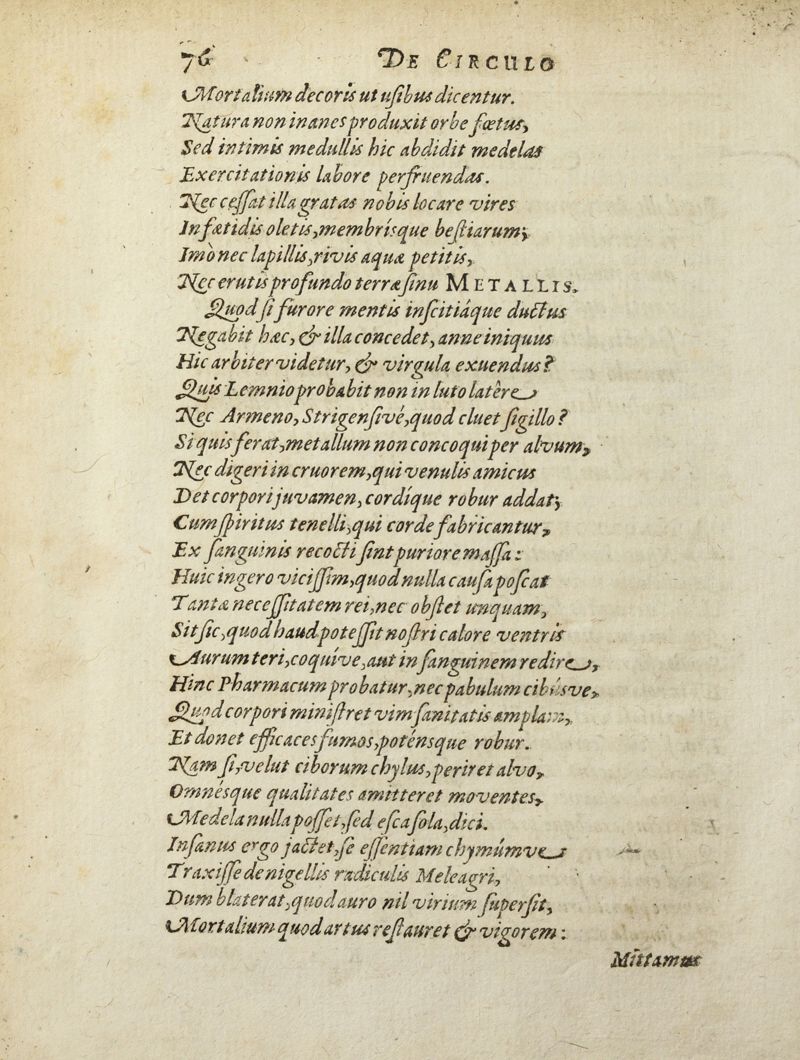 76 DE CIRCULO
Mortalium decoris ut usibus dicentur.
Natura non inanes produxit orbe fœtus,
Sed intimis medullis hic abdidit medelas
Exercitationis labore perfruendas.
Nec cessat illa gratas nobis locare vires
In fætidis oletis, membrísque bestiarum;
Imò nec lapillis, rivis aquæ petitis,
Nec erutis profundo terræ sinu METALLIS.
Quod si furore mentis inscitiáque ductus
Negabit hæc, & illa concedet, anne iniquus
Hic arbiter videtur, & virgula exuendus?
Quis Lemnio probabit non in luto latêre
Nec Armeno, Strigensivé, quod cluet sigillo?
Si quis ferat, metallum non concoqui per alvum,
Nec digeri in cruorem, qui venulis amicus
Det corpori juvamen, cordíque robur addat;
Cum spiritus tenelli, qui corde fabricantur,
Ex sanguinis recocti sint puriore massa:
Huic ingero vicissim, quod nulla causa poscat
Tantæ necessitatem rei, nec obstet unquam,
Sit sic, quod haud potessit nostri calore ventris
Aurum teri, coquíve, aut in sanguinem redire,
Hinc Pharmacum probatur, nec pabulum cibúsve,
Quod corpori ministret vim sanitatis amplam,
Et donet efficaces fumos, poténsque robur.
Nam si, velut ciborum chylus, periret alvo,
Omnésque qualitates amitteret moventes,
Medela nulla posset, sed esca sola, dici.
Insanus ergo jactet, se essentiam chymúmve
Traxisse de nigellis radiculis Meleagri,
Dum blaterat, quod auro nil virium supersit,
Mortalium quod artus restauret & vigorem:
Mittamus